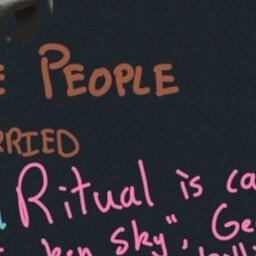 E PEOPLE
RRIED
Ritual is ca
ken Sky", Ge